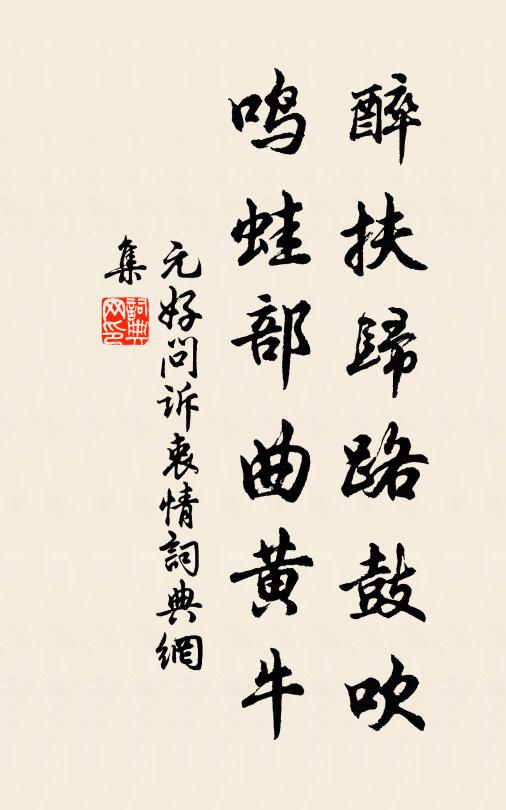 醉扶歸路鼓吹
鸣蛙部曲黄牛
元好问诉衷情詞典網
集
詞典
网印